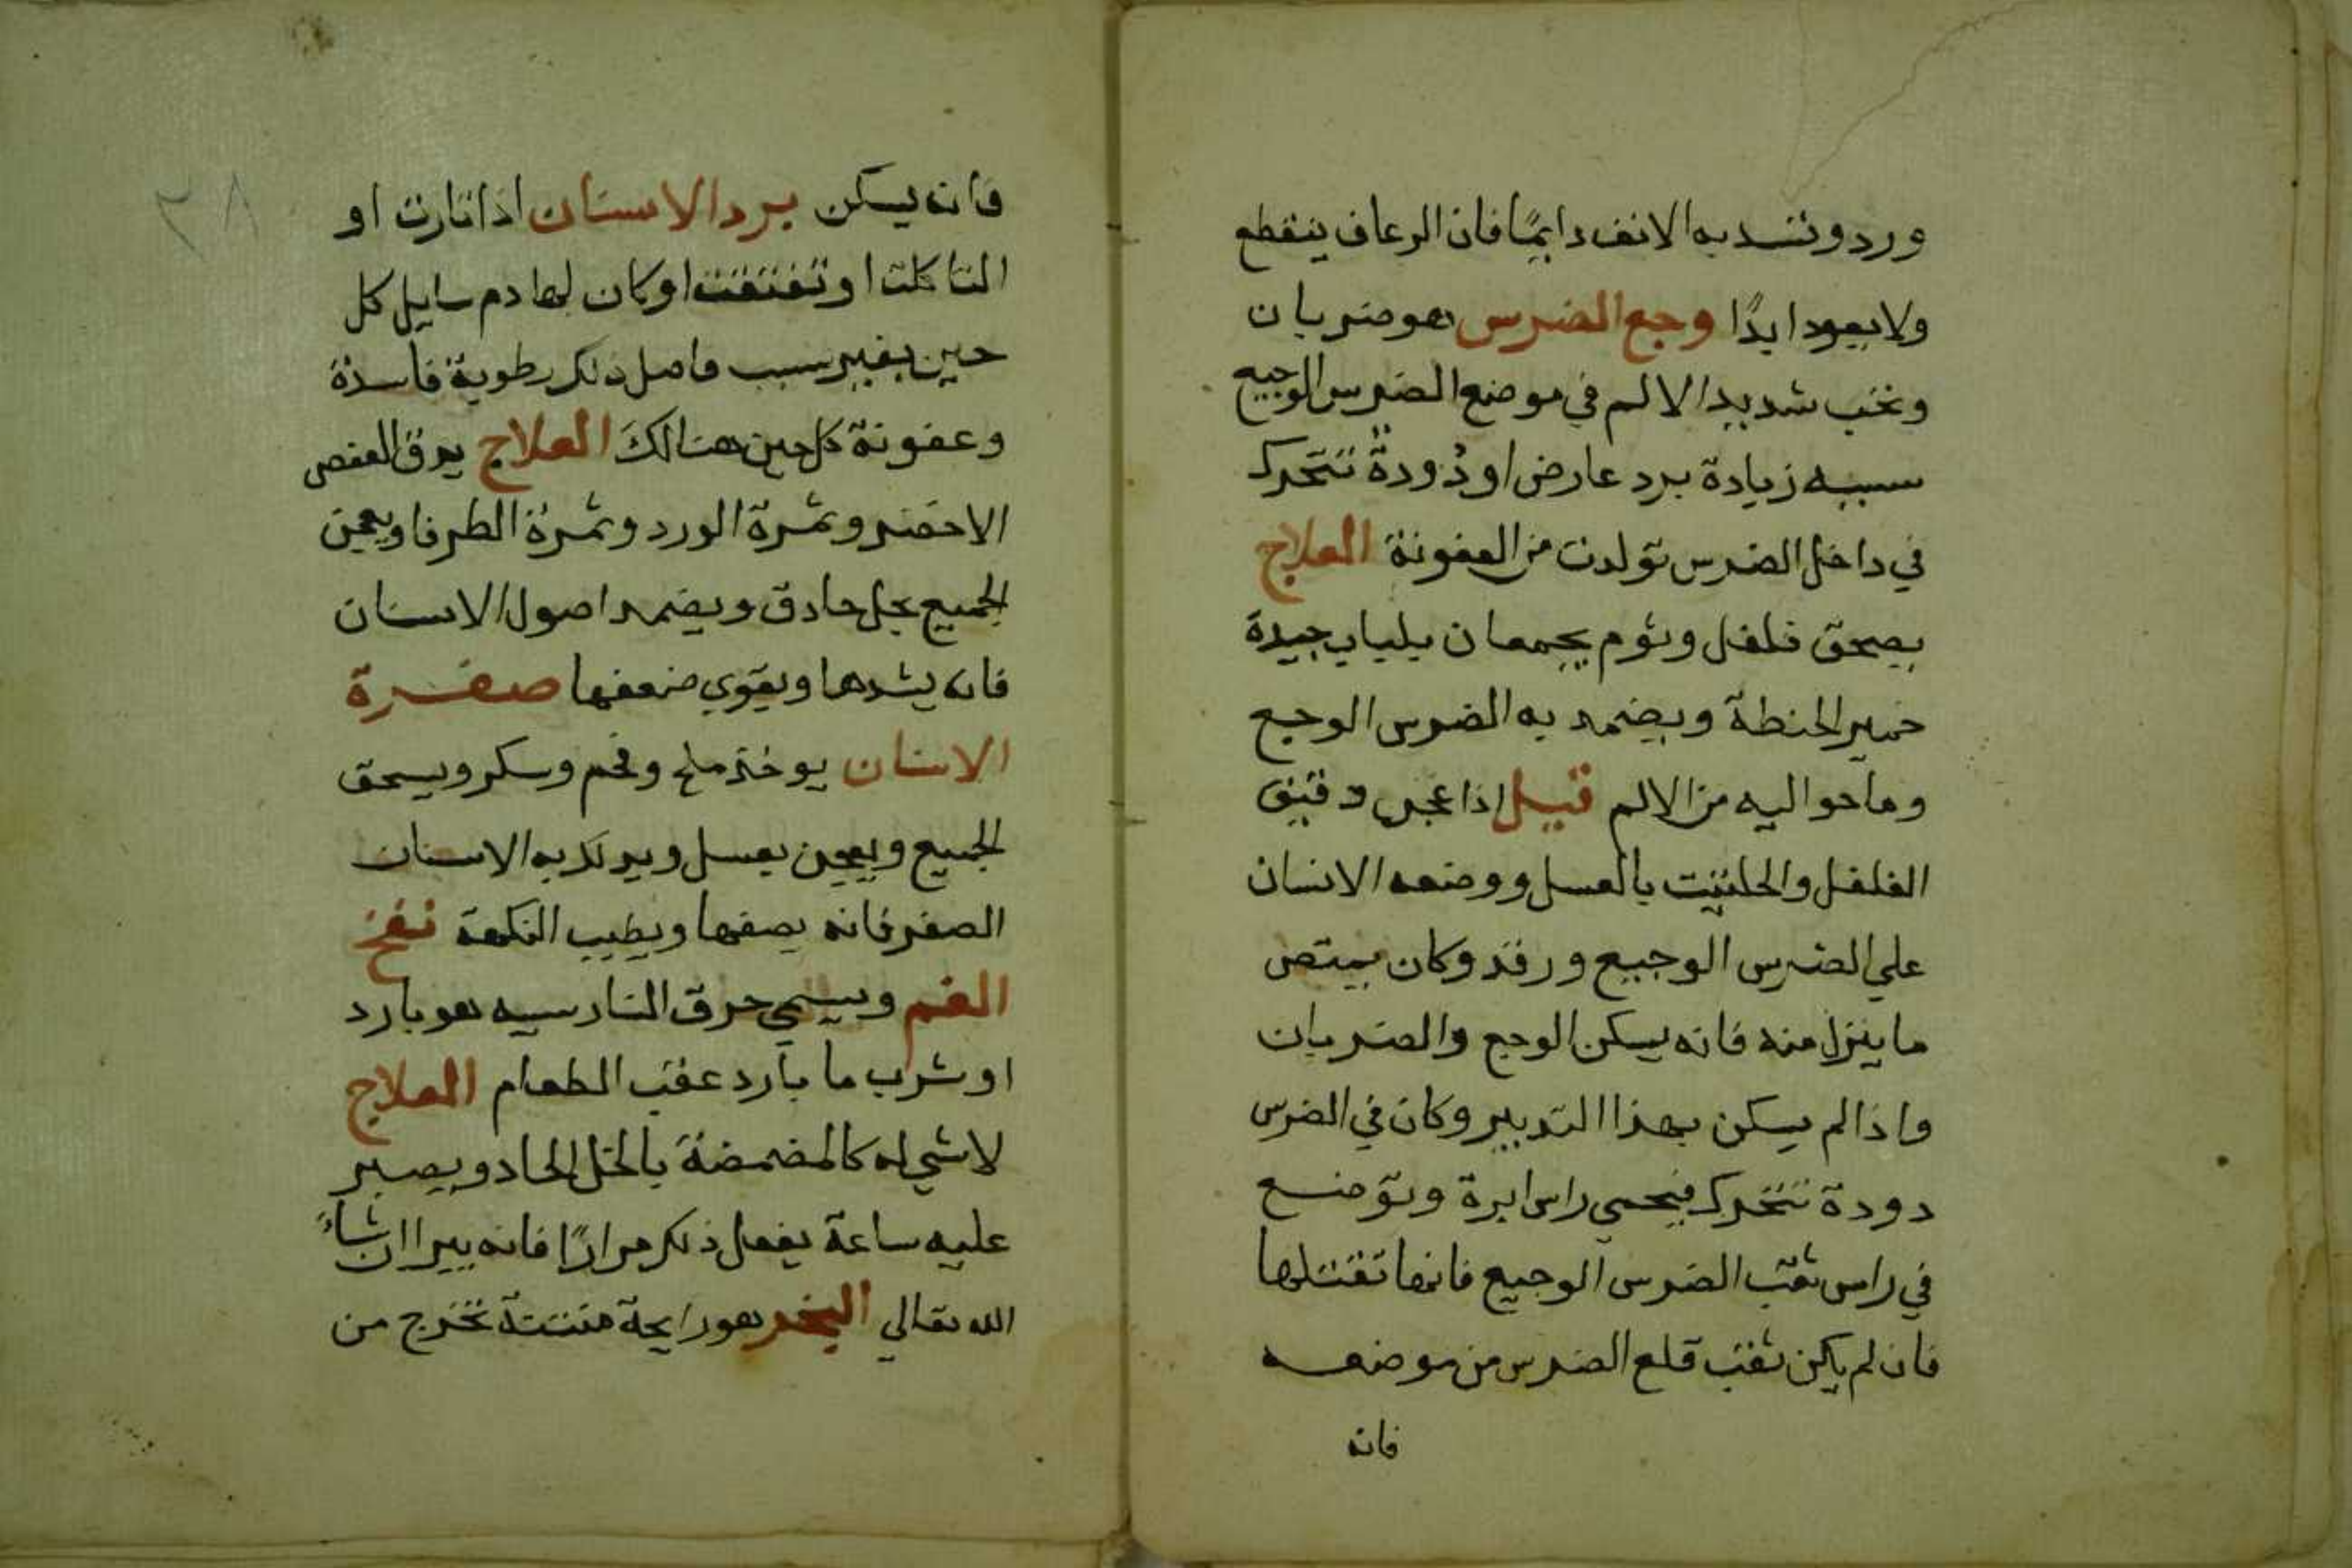 ورد وتسد به الانف دايمًا فان الرعاف ينقطع
ولا يعود ابدًا وجع الضرس هو ضربان
ونخب شديد الالم في موضع الضرس الوجيع
سببه زيادة برد عارض او دُودة تتحرك
في داخل الضرس تولدت من العفونة العلاج
يصحق فلفل وثوم يجمعان بلباب جيدة
خمير الحنطة ويضمد به الضرس الوجع
وما حواليه من الالم قيل اذا عجن دقيق
الفلفل والحلتيت بالعسل ووضعه الانسان
علي الضرس الوجيع ورقد وكان يمتص
ما ينزل منه فانه يسكن الوجع والضربان
واذا لم يسكن بهذا التدبير وكان في الضرس
دودة تتحرك فيحمي راس ابرة وتوضع
في راس ثقب الضرس الوجيع فانها تقتلها
فان لم يكن ثقب قلع الضرس من موضعه
فانه
٨٣
فانه يسكن برد الاسنان اذا تارت او
التاكلت او تفتقت او كان لها دم سايل كل
حين بغير سبب فاصل ذلك رطوبة فاسدة
وعفونة كل حين هنالكَ العلاج يدق العفص
الاخضر وثمرة الورد وثمرة الطرفا ويعجن
الجميع بخل حادق ويضمد اصول الاسنان
فانه يشدها ويقوي ضعفها صفرة
الاسنان يوخذ ملح وفحم وسكر ويسحق
الجميع ويعجن بعسل ويدلك به الاسنان
الصفر فانه يصفها ويطيب النكهة نفخ
الفم ويسمي حرق النار سببه هو بارد
او شرب ما بارد عقب الطعام العلاج
لا شي له كالمضمضة بالخل الحاد ويصبر
عليه ساعة يفعل ذلك مرارًا فانه يبرا ان شاءً
الله تعالي البخر هو رايحة منتنة تخرج من